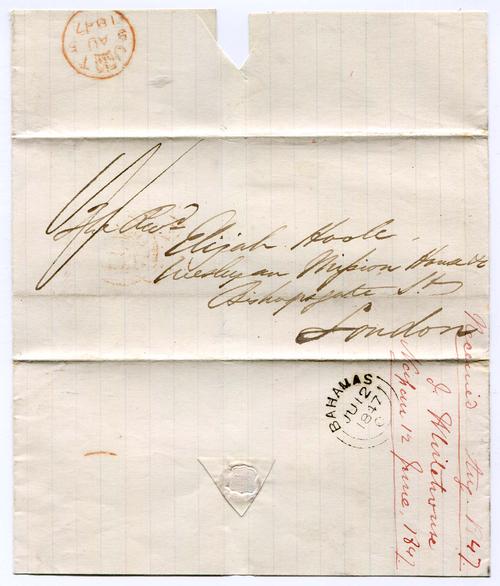 The Revd.
Elijah Hoole
Wesleyan Mission House
Bishopsgate St
London
BAHAMAS
JU 12
1847
Received Aug. 1847
J. Whitehouse
Nassau 12 June, 1847
AU 5
1847